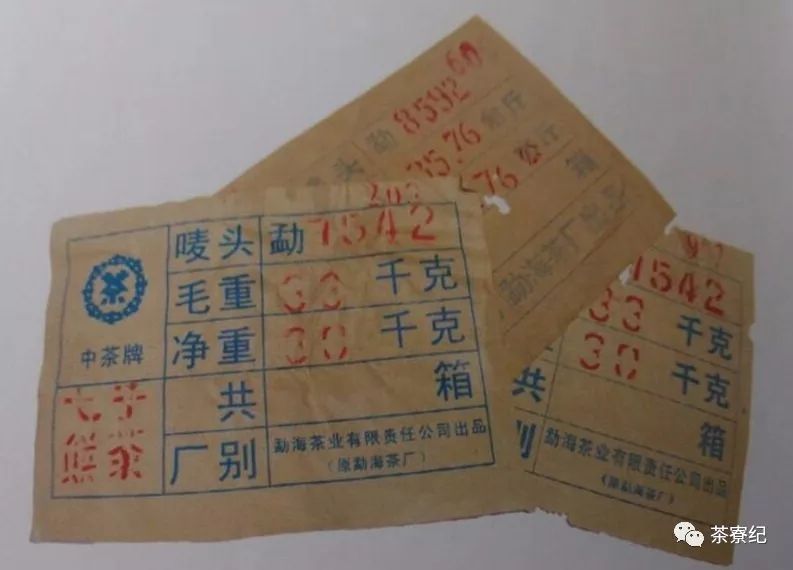 唛头 勐7542
毛重 33 千克
中茶牌 净重 30 千克
七子 共 箱
熊茶 厂别 勐海茶业有限责任公司出品
(原勐海茶厂)
头 勐 8592
76 公斤
76 公斤
箱
勐海茶厂出品
7542
33 千克
30 千克
共 箱
别 勐海茶业有限责任公司出品
(原勐海茶厂)
茶寮纪